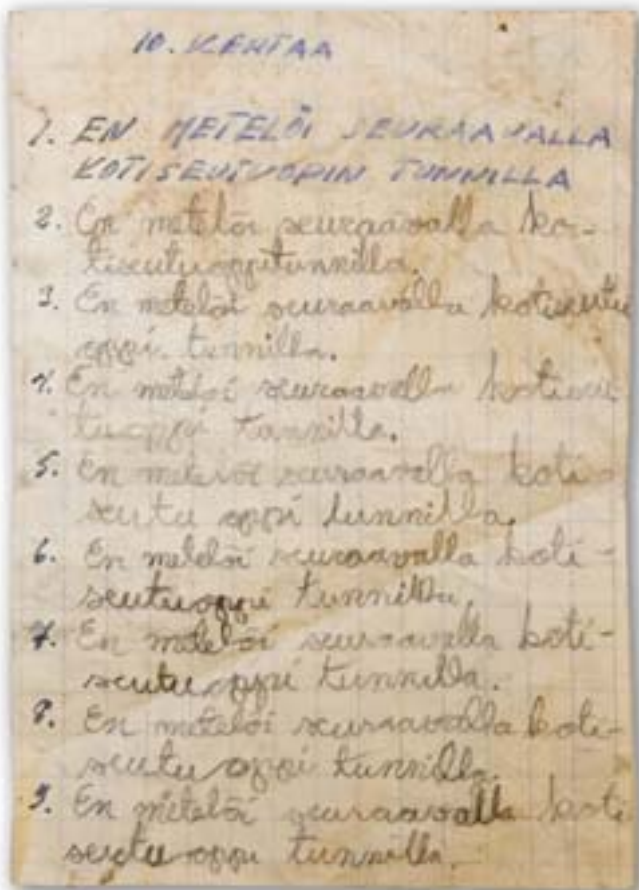 10. KERTAA
1. EN METELÖI SEURAAVALLA
KOTISEUTUOPIN TUNNILLA
2. En metelöi seuraavalla ko-
tiseutuoppitunnilla.
3. En metelöi seuraavalla kotiseutu
oppi tunnilla.
4. En metelöi seuraavalla kotiseu
tuoppi tunnilla.
5. En metelöi seuraavalla koti-
seutu oppi tunnilla.
6. En metelöi seuraavalla koti-
seutuoppi tunnilla.
7. En metelöi seuraavalla koti-
seutuoppi tunnilla.
8. En metelöi seuraavalla koti-
seutu oppi tunnilla.
9. En metelöi seuraavalla koti
seutu oppi tunnilla.